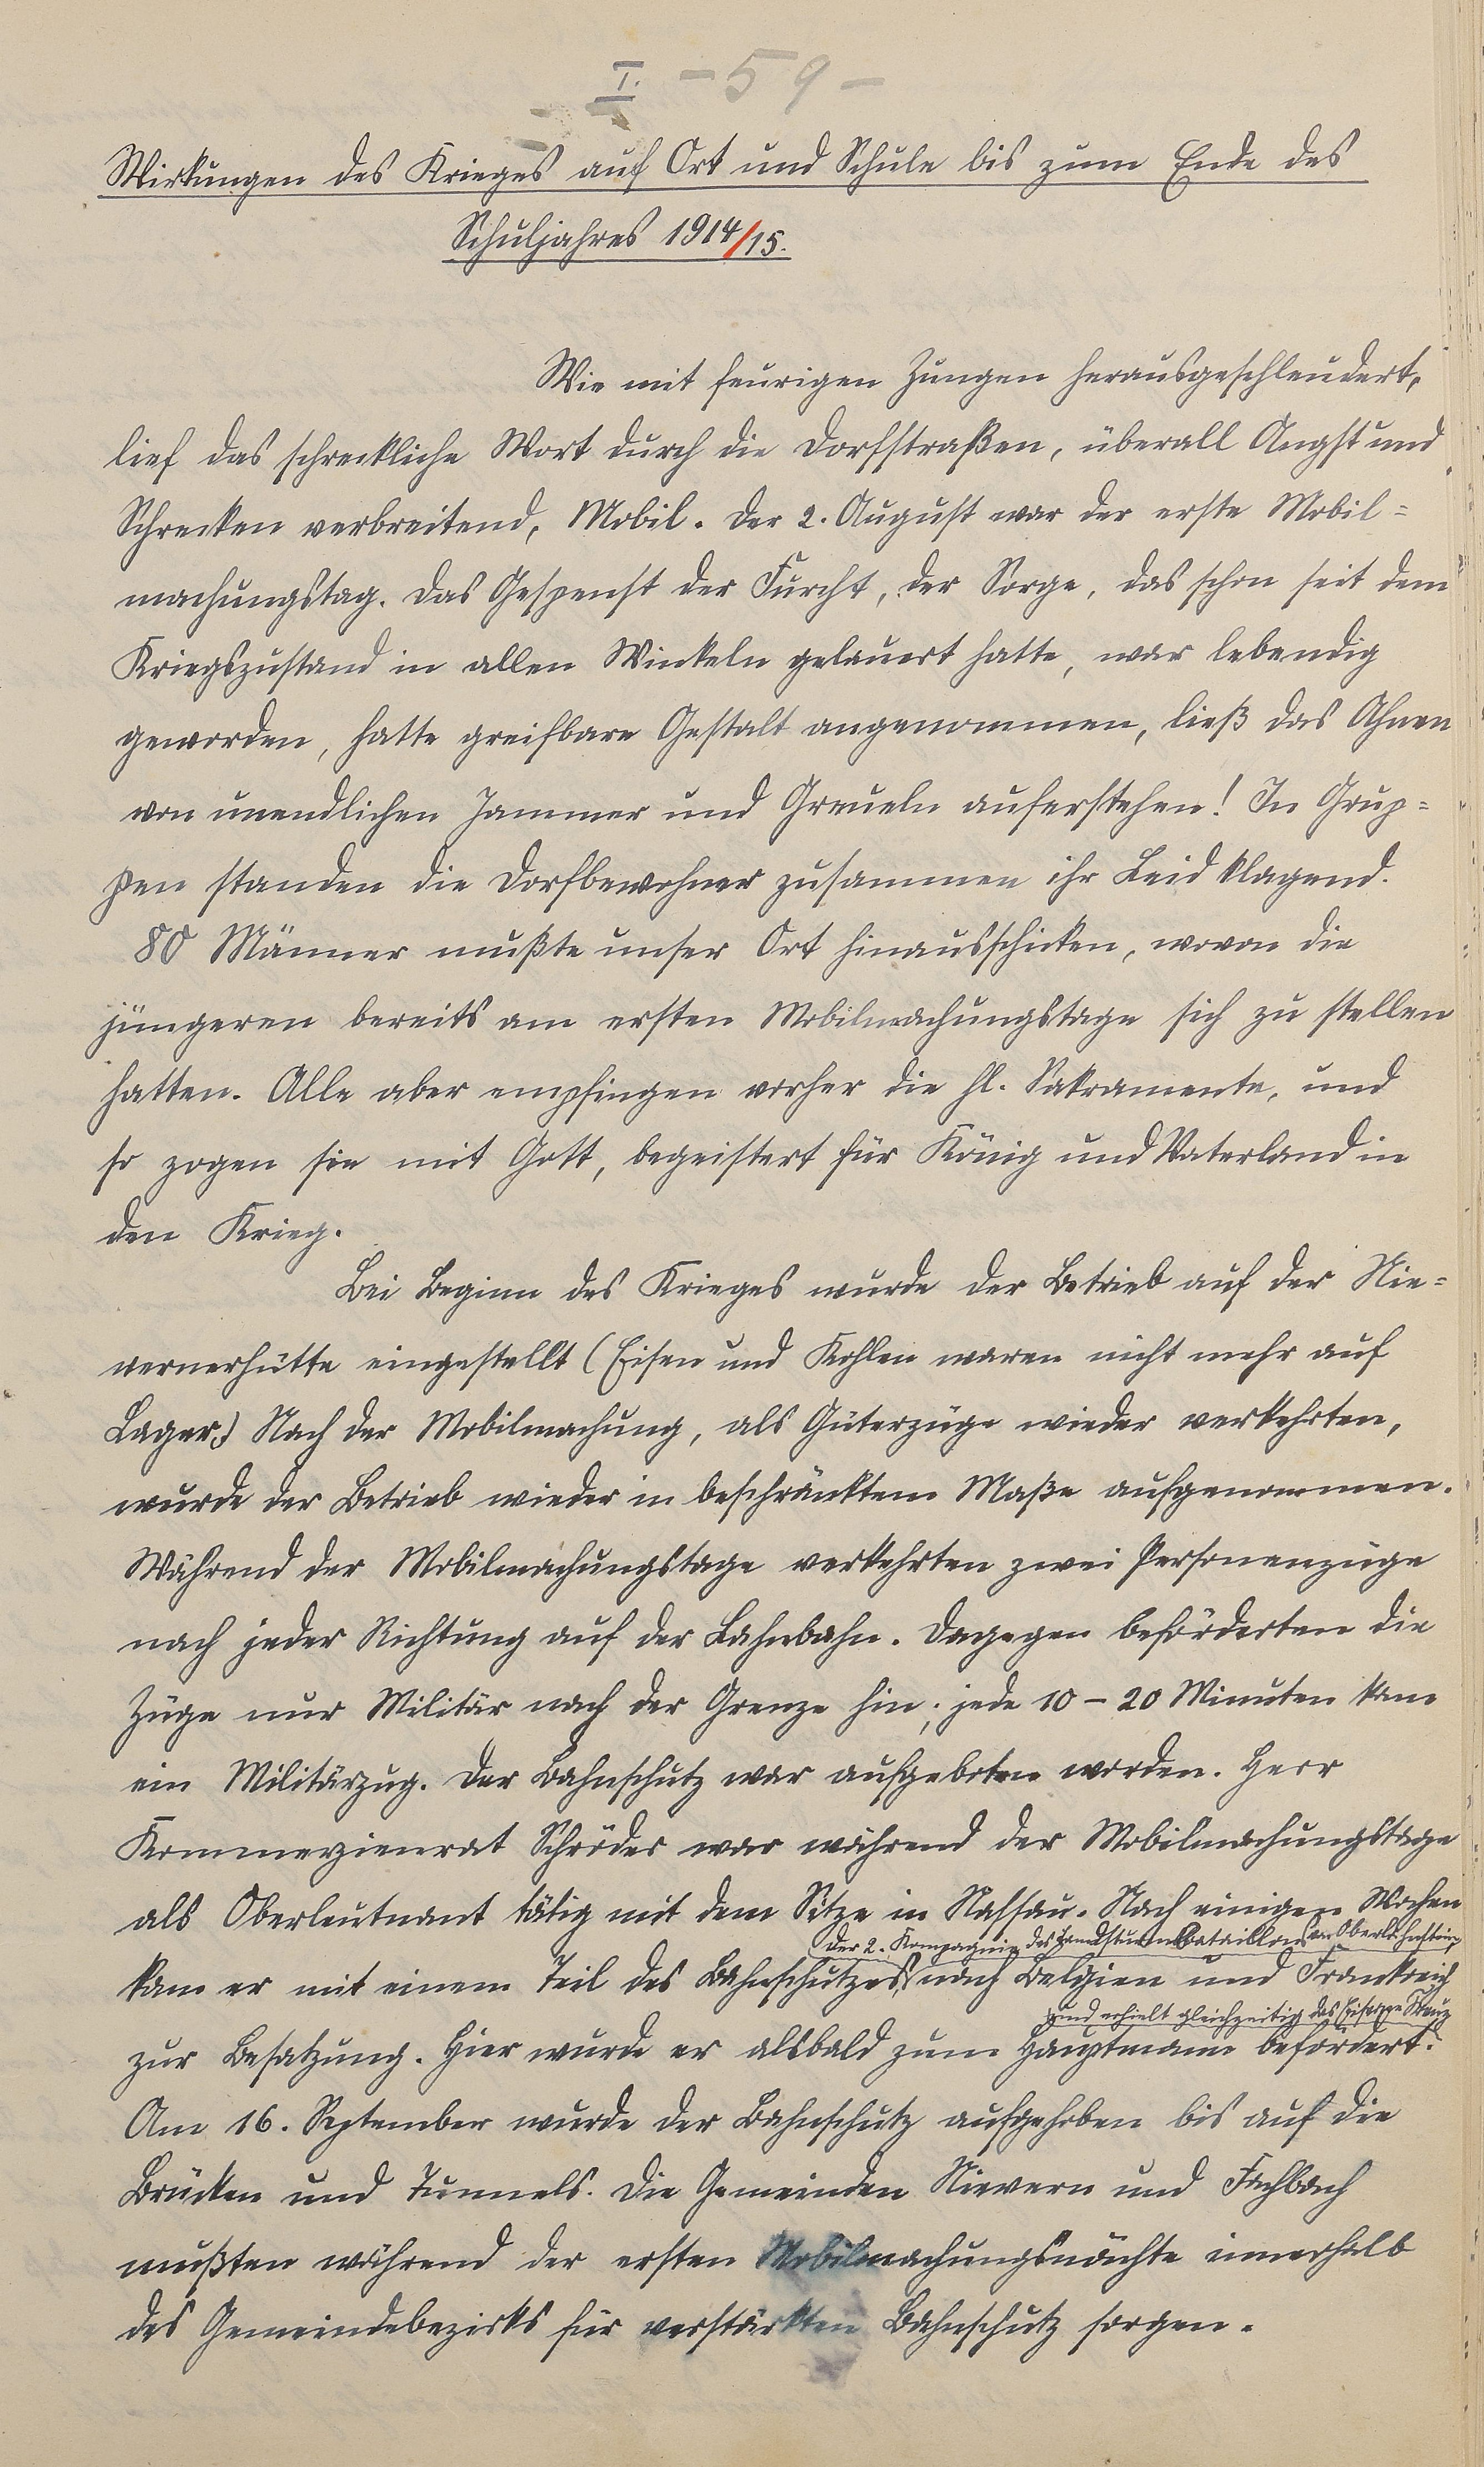 I. - 59 -
Wirkungen des Krieges auf Ort und Schule bis zum Ende des
Schuljahres 1914/15.
Wie mit feurigen Zungen herausgeschleudert,
lief das schreckliche Wort durch die Dorfstraßen, überall Angst und
Schrecken verbreitend, Mobil. Der 2. August war der erste Mobil=
machungstag. Das Gespenst der Furcht, der Sorge, das schon seit dem
Kriegszustand in allen Winkeln gelauert hatte, war lebendig
geworden, hatte greifbare Gestalt angenommen, ließ das Ahnen
von unendlichen Jammer und Greueln auferstehen! In Grup=
pen standen die Dorfbewohner zusammen ihr Leid klagend.
80 Männer mußte unser Ort hinausschicken, wovon die
jüngeren bereits am ersten Mobilmachungstage sich zu stellen
hatten. Alle aber empfingen vorher die hl. Sakramente, und
so zogen sie mit Gott, begeistert für König und Vaterland in
den Krieg.
Bei Beginn des Krieges wurde der Betrieb auf der Nie=
vernerhütte eingestellt (Eisen und Kohlen waren nicht mehr auf
Lager.) Nach der Mobilmachung, als Güterzüge wieder verkehrten,
wurde der Betrieb wieder in beschränktem Maße aufgenommen.
Während der Mobilmachungstage verkehrten zwei Personenzüge
nach jeder Richtung auf der Lahnbahn. Dagegen beförderten die
Züge nur Militär nach der Grenze hin; jede 10 - 20 Minuten kam
ein Militärzug. Der Bahnschutz war aufgeboten worden. Herr
Kommerzienrat Schröder war während der Mobilmachungstage
als Oberleutnant tätig mit dem Sitze in Nassau. Nach einigen Wochen
der 2. Kompagnie des Landsturmbataillons von Oberlahnstein
kam er mit einem Teil des Bahnschutzes nach Belgien und Frankreich
und erhielt gleichzeitig das Eiserne Kreuz
zur Besatzung. Hier wurde er alsbald zum Hauptmann befördert.
Am 16. September wurde der Bahnschutz aufgehoben bis auf die
Brücken und Tunnels. Die Gemeinden Nievern und Fachbach
mußten während der ersten Mobilmachungsnächte innerhalb
des Gemeindebezirks für verstärkten Bahnschutz sorgen.